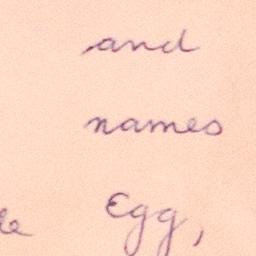 and
names
Egg,